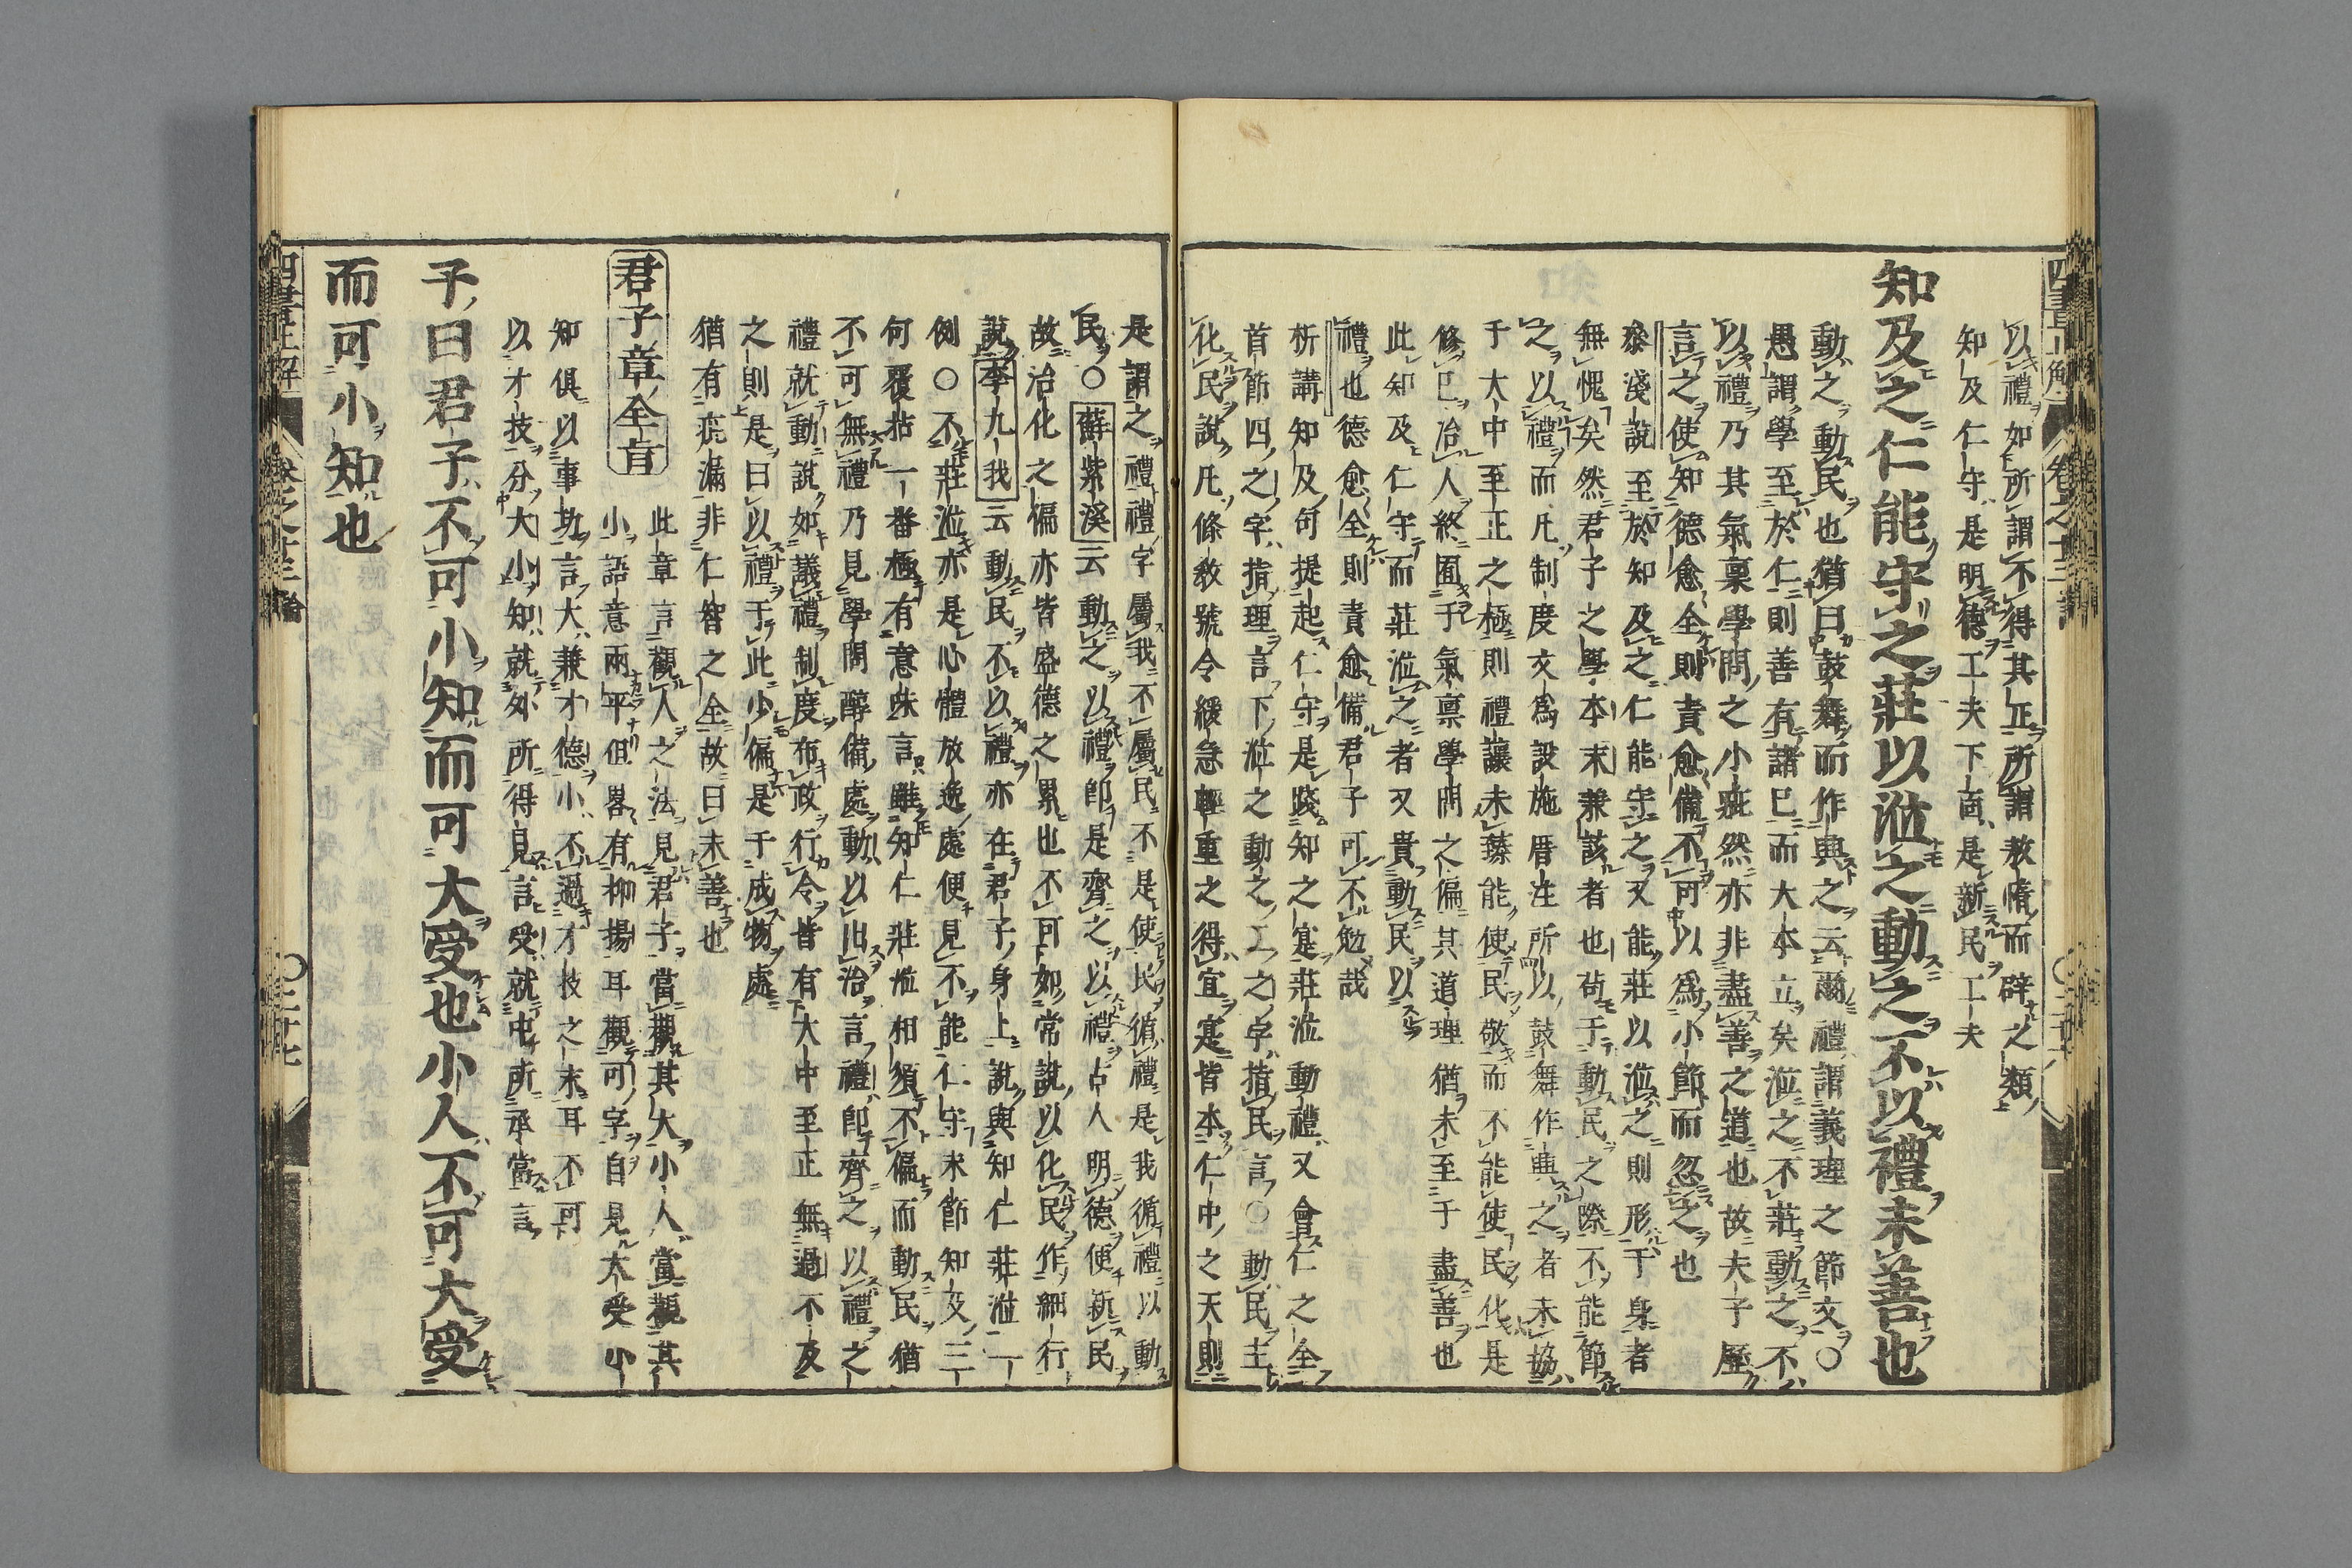 以禮如所謂不得其正所謂敖惰而辟之類
知及仁守是明德工夫下面是新民工夫
知及之仁能守之莊以涖之動之不以禮未善也
動之動民也猶曰鼓舞而作興之云爾禮謂義理之節文○
愚謂學至於仁則善有諸己而大本立矣涖之不莊動之不
以禮乃其氣稟學問之小疵然亦非盡善之道也故夫子歷
言之使知德愈全則責愈備不可以爲小節而忽之也
叅淺說至於知及之仁能守之又能莊以涖之則形于身者
無愧矣然君子之學本末兼該者也茍于動民之際不能節
之以禮而凡制度文爲設施厝注所以鼓舞作興之者未協
于大中至正之極則禮讓未臻能使民敬而不能使民化是
修己治人終囿于氣稟學問之偏其道理猶未至于盡善也
此知及仁守而莊涖之者又貴動民以
禮也德愈全則責愈備君子可不勉哉
析講知及句提起仁守是踐知之寔莊涖動禮又會仁之全
首節四之字指理言下涖之動之二之字指民言○動民主
化民說凡條敎號令緩急輕重之得宜寔皆本仁中之天則
是謂之禮禮字屬我不屬民不是使民循禮是我循禮以動
民○蘇紫溪云動之以禮卽是齊之以禮古人明德便新民
故治化之偏亦皆盛德之累也不可如常說以化民作細行
說李九我云動民不以禮亦在君子身上說與知仁莊涖一
例○不莊涖亦是心體放逸處便見不能仁守末節知及三
句覆拈一番極有意味言雖知仁莊涖相須不偏而動民猶
不可無禮乃見學問醇備處動以出治言禮卽齊之以禮之
禮就動說如議禮制度布政行令皆有大中至正無過不及
之則是曰以禮于此少偏是于成物處
猶有疵漏非仁智之全故曰未善也
君子章全旨
此章言觀人之法見君子當觀其大小人當觀其
小語意兩平但畧有抑揚耳觀可字自見大受小
知俱以事功言大兼才德小不過才技之末耳不可
以才技分大小知就外所得見言受就中所承當言
子曰君子不可小知而可大受也小人不可大受
而可小知也
四書正解
卷之十三論